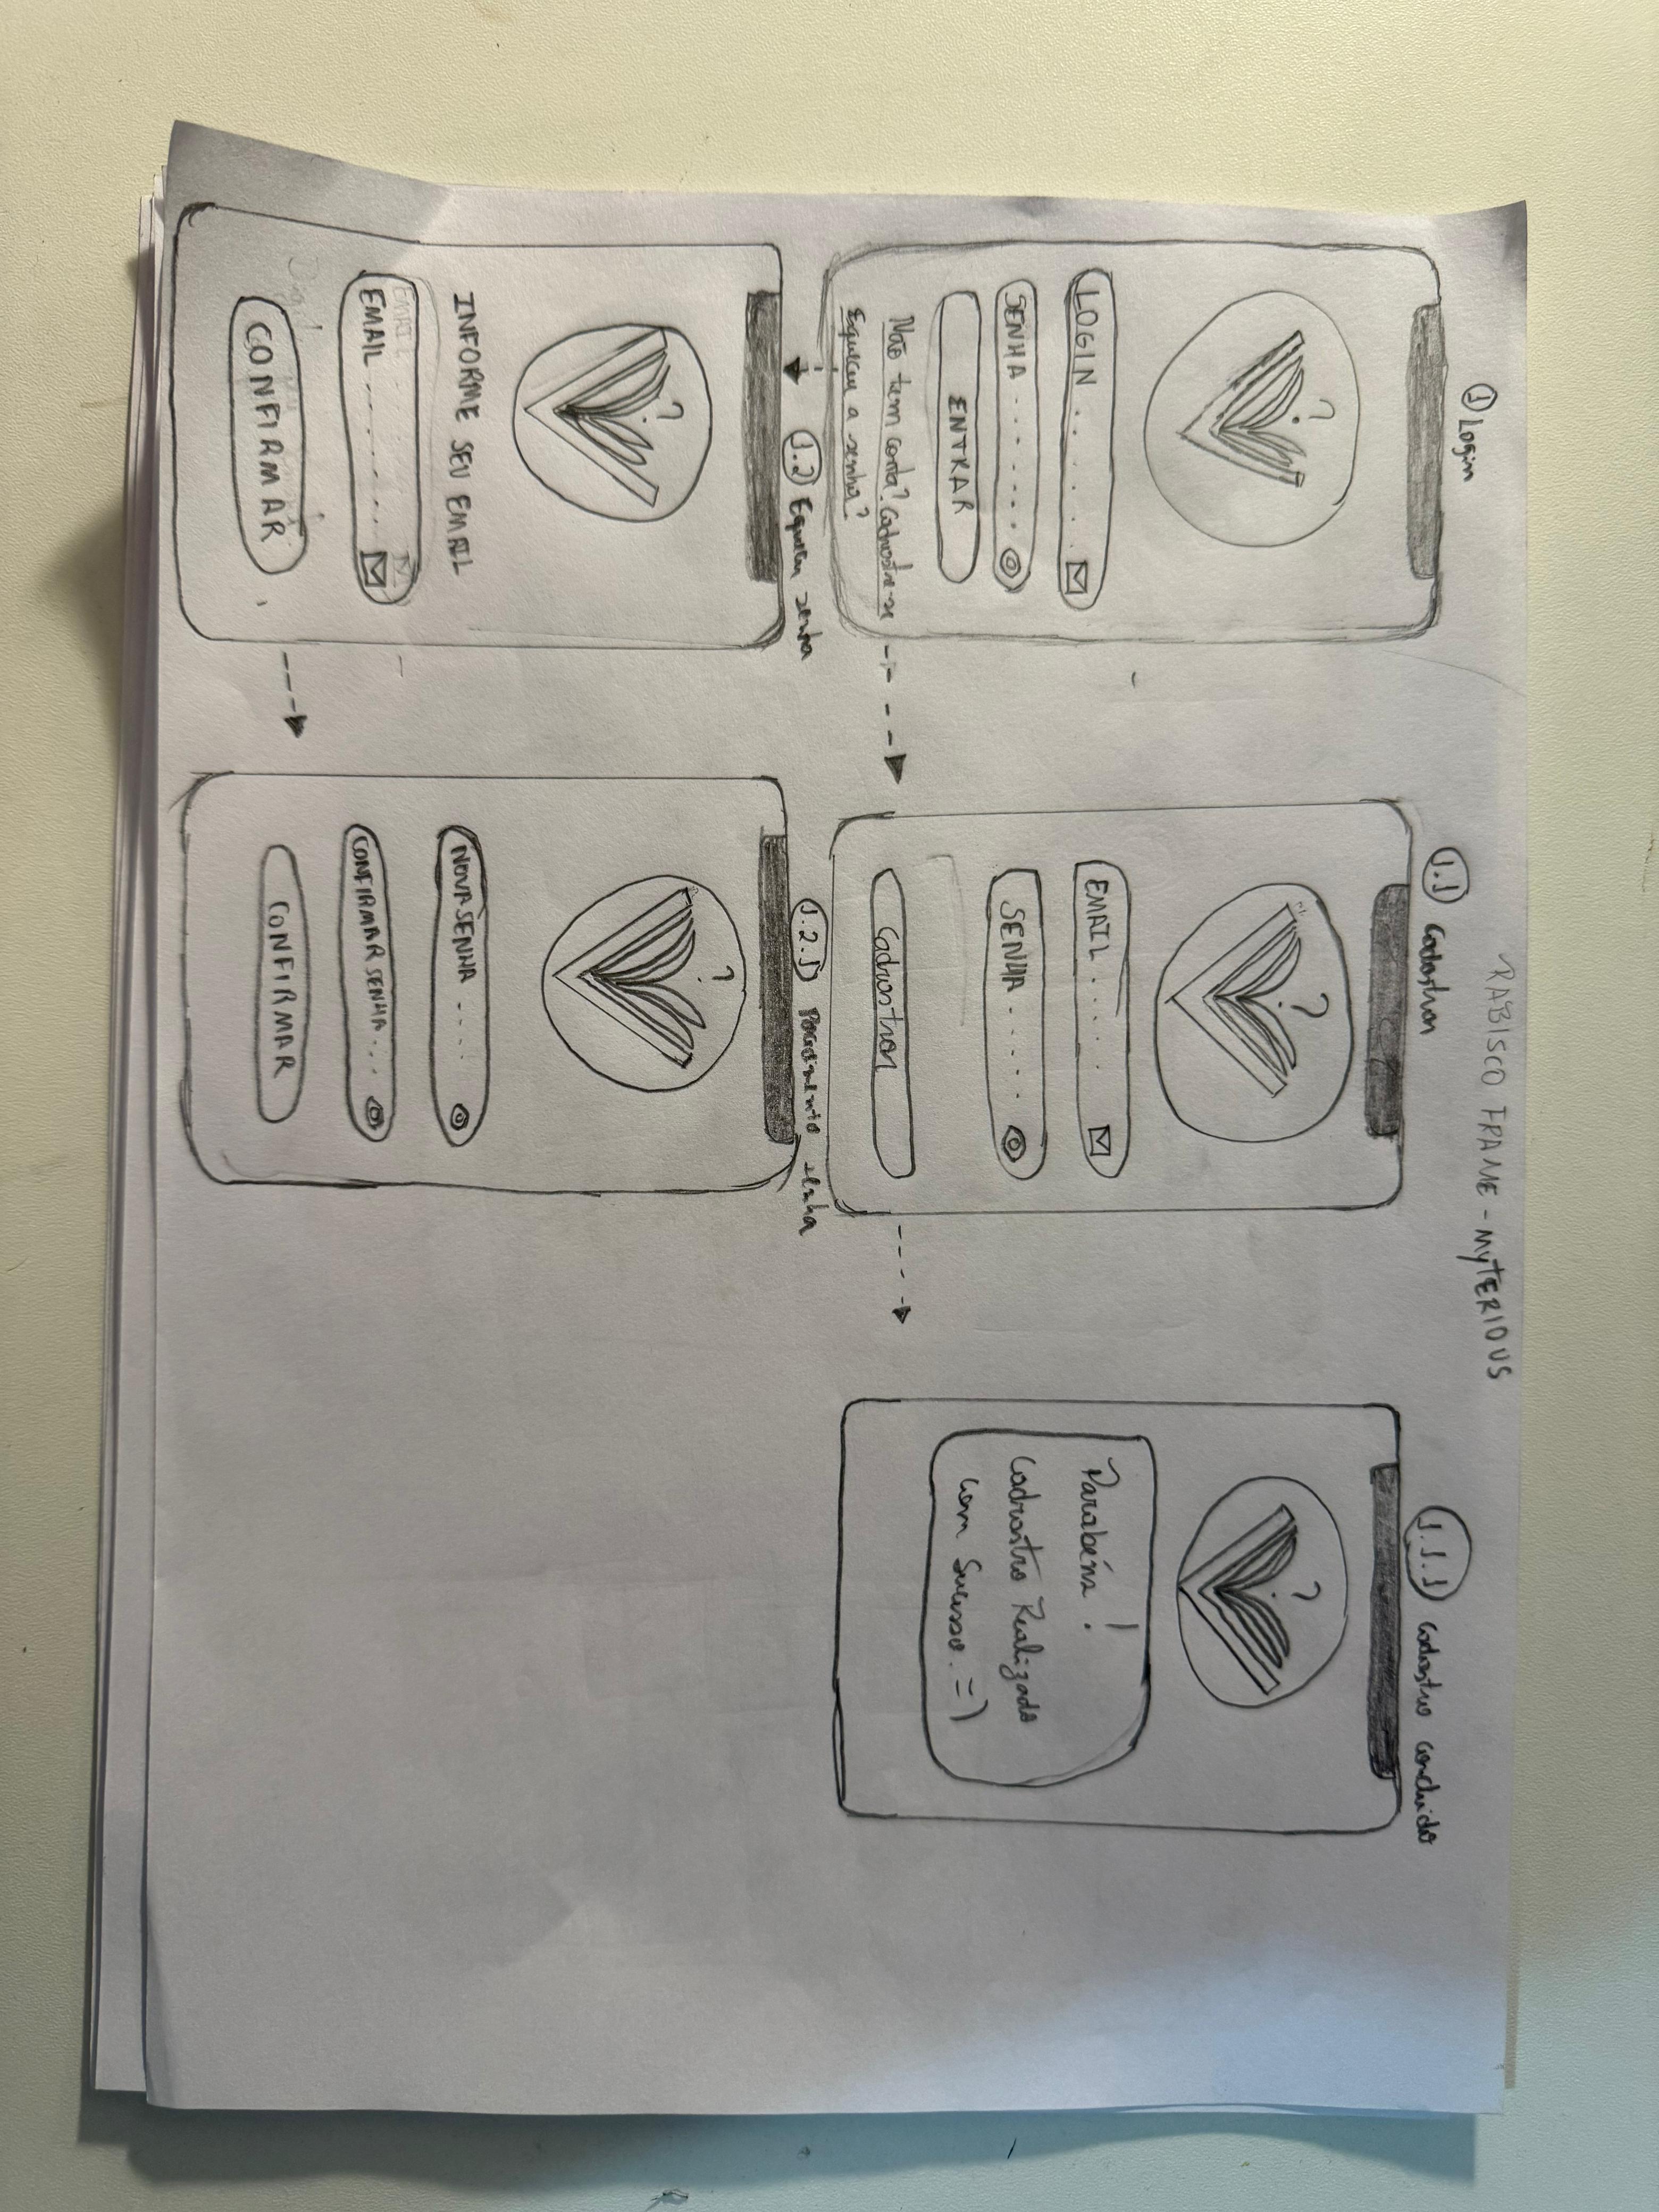 RABISCO FRAME - MYTERIOUS
1 Login
?
LOGIN . . . . . .
SENHA . . . . . . .
ENTRAR
Não tem conta? Cadrastre-se
Equeceu a senha?
1.1 Cadastrar
?
EMAIL . . . . .
SENHA . . . . .
Cadrastrar
1.1.1 Cadastro concluido
?
Parabéns !
Cadrastro Realizado
com Sucesso. =)
1.2 Equeceu senha
?
INFORME SEU EMAIL
EMAIL
EMAIL . . . . . . .
CONFIRMAR
1.2.1 senha
?
NOVA SENHA . . . .
CONFIRMAR SENHA . . .
CONFIRMAR